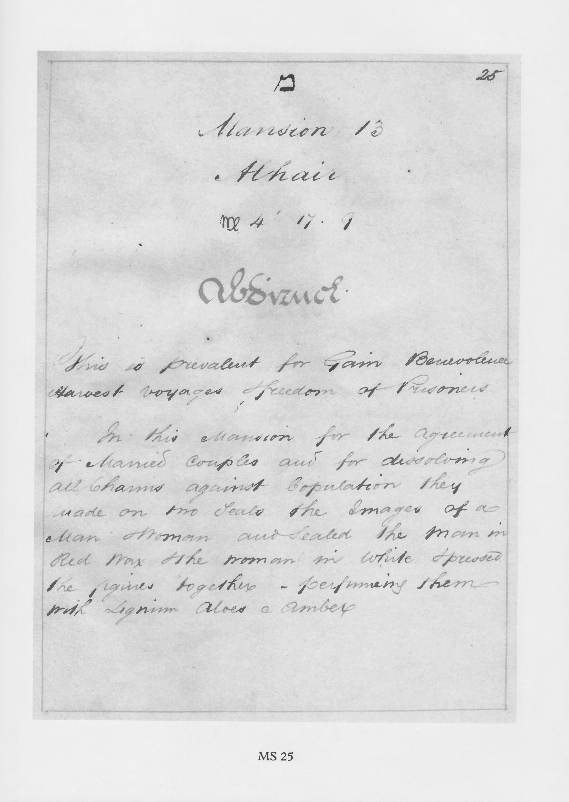 25
מ
Mansion 13
Alhair
♍ 4 17. 9
This is prevalent for Gain Benevolence
Harvest voyages & freedom of Prisoners
In this Mansion for the agreement
of Married Couples and for dissolving
all Charms against Copulation they
made on two Seals the Images of a
Man & Woman and Sealed the Man in
Red Wax & the woman in white & pressed
the figures together - perfumeing them
with Lignum Aloes & Amber
MS 25